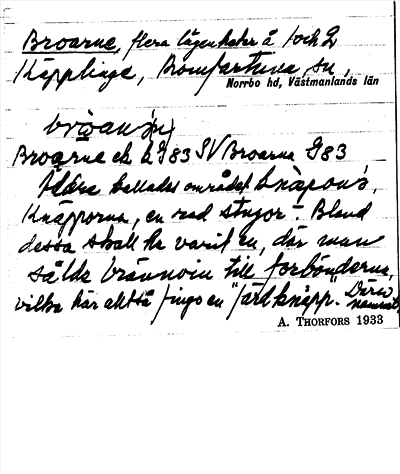 Broarne, flera lägenheter å 1 och 2
Käpplinge, Romfartuna sn,
Norrbo hd, Västmanlands län
Broarne ek bl G83 SV Broarna G83
Äldre kallades området
Knäpporna, en rad stugor. Bland
dessa skall ha varit en, där man
sålde brännvin till forbönderna,
vilka här alltså fingo en "färdknäpp". Därav
namnet.
A. THORFORS 1933